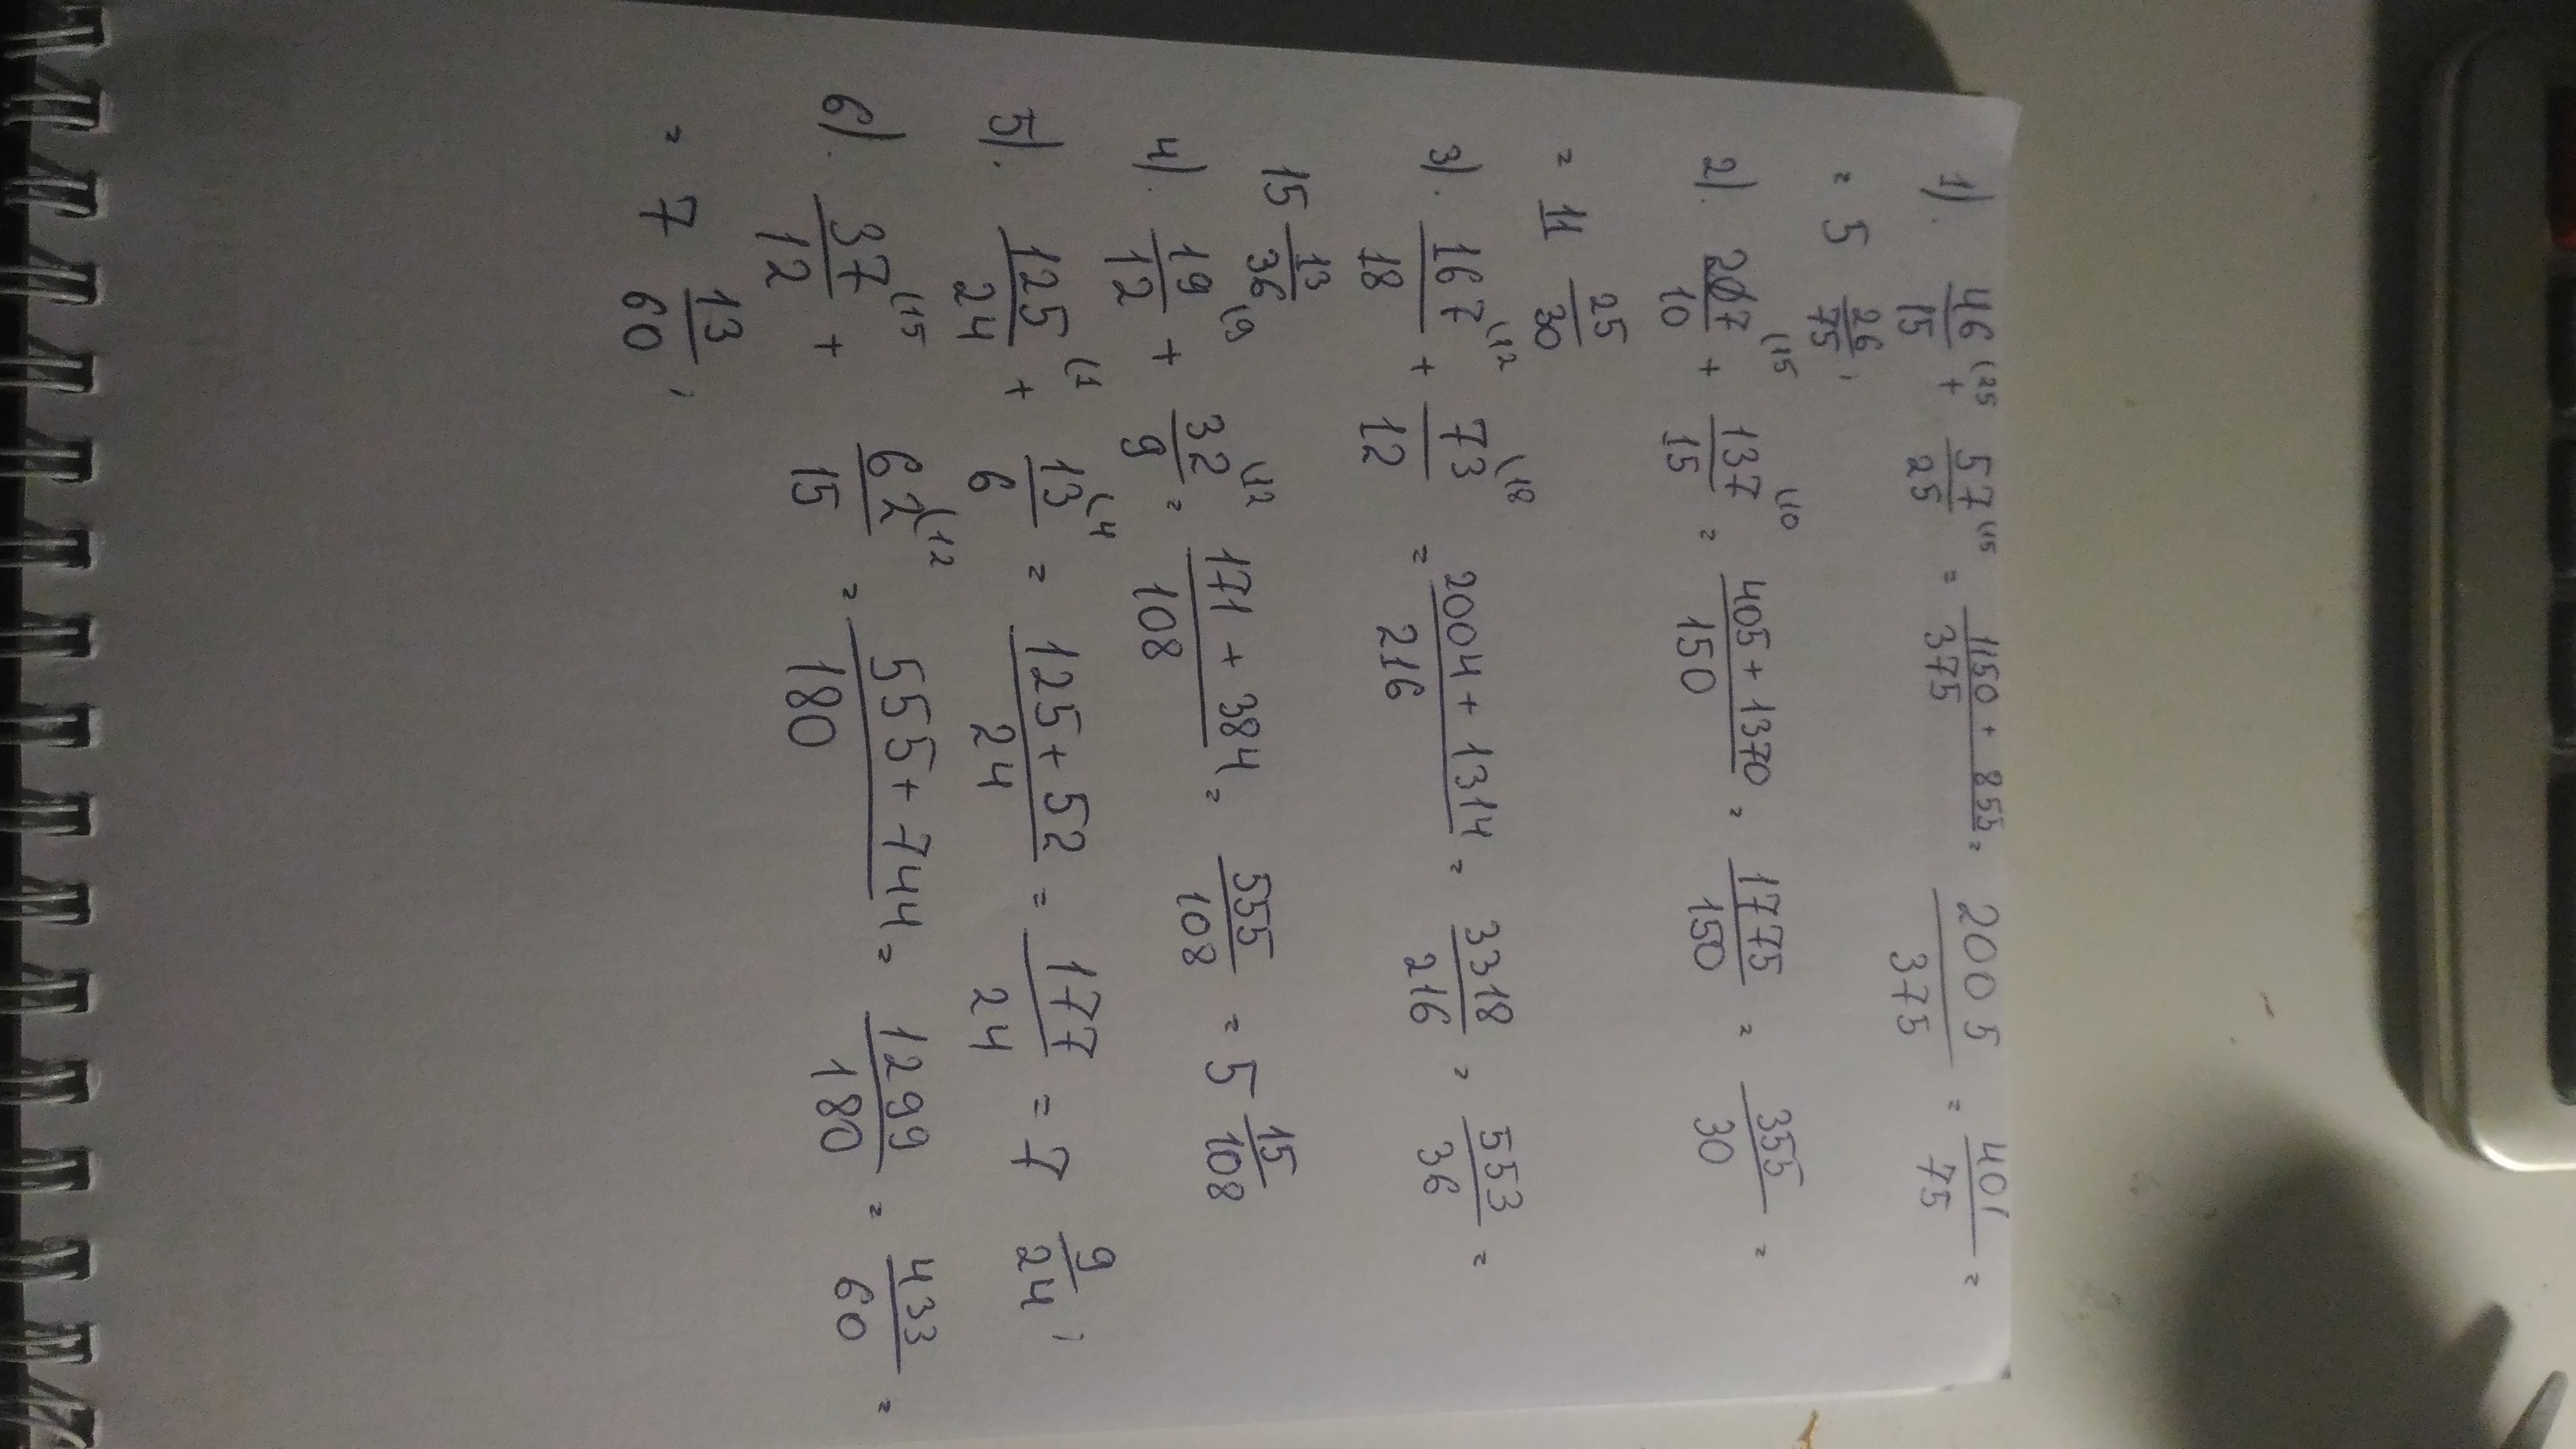 1). 46/15 (25 + 57/25 (15 = 1150 + 855/375 = 2005/375 = 401/75 =
= 5 26/75 ;
2). 27/10 (15 + 137/15 (10 = 405 + 1370/150 = 1775/150 = 355/30 =
= 11 25/30
3). 167/18 (12 + 73/12 (18 = 2004 + 1314/216 = 3318/216 = 553/36 =
15 13/36
4). 19/12 (9 + 32/9 (12 = 171 + 384/108 = 555/108 = 5 15/108
5). 125/24 (1 + 13/6 (4 = 125 + 52/24 = 177/24 = 7 9/24 ;
6). 37/12 (15 + 62/15 (12 = 555 + 744/180 = 1299/180 = 433/60 =
= 7 13/60 ;